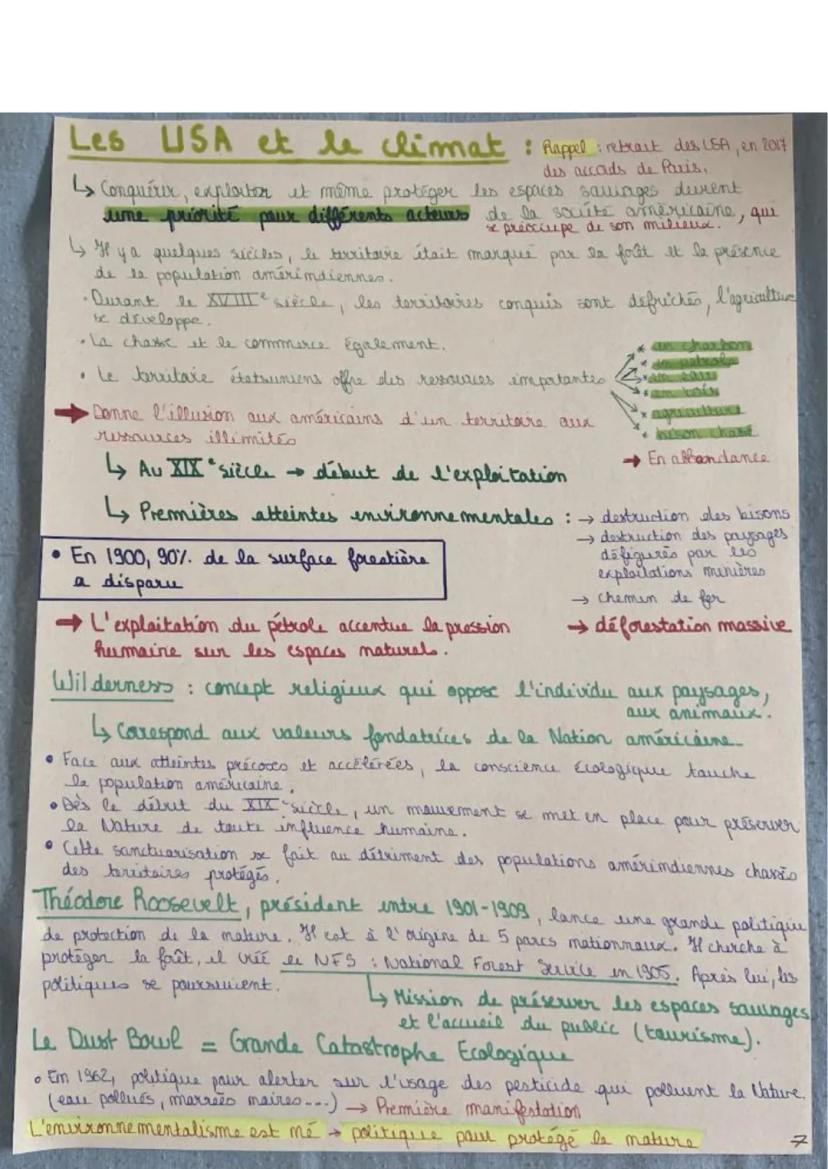 Les USA et le climat : Rappel : retrait des USA, en 2017
des accods de Paris.
↳ Conquérir, exploiter et même protéger les espaces sauvages durent
une priorité pour différents acteurs de la société américaine, qui
se préoccupe de son milieux.
↳ Il y a quelques siècles, le territoire était marqué par la foût et la présence
de la population amérindiennes.
• Durant le XVIIIe siècle, les territoires conquis sont défrichés, l'agriculture
se développe.
• La chasse et le commerce également.
• Le territoire étatsuniens offre des ressources importantes
* en charbon
* en pétrole
* en eau
* en bois
* agriculture
* bison chassé
→ En abbondance
→ Donne l'illusion aux américains d'un territoire aux
ressources illimités
↳ Au XIXe siècle → début de l'exploitation
↳ Premières atteintes environnementales : → destruction des bisons
→ destruction des paysages
défigurés par les
exploitations minières
→ chemin de fer
→ déforestation massive
• En 1900, 90% de la surface forestière
a disparu
→ L'exploitation du pétrole accentue la pression
humaine sur les espaces naturels.
Wilderness : concept religieux qui oppose l'individu aux paysages,
aux animaux.
↳ Correspond aux valeurs fondatrices de la Nation américaine.
• Face aux atteintes précoces et accélérées, la conscience écologique touche
la population américaine.
• Dès le début du XIXe siècle, un mouvement se met en place pour préserver
la Nature de toute influence humaine.
• Cette sanctuarisation se fait au détriment des populations amérindiennes chassés
des territoires protégés.
Théodore Roosevelt, président entre 1901-1909, lance une grande politique
de protection de la nature. Il est à l'origine de 5 parcs nationnaux. Il cherche à
protéger la foût, il crée le NFS : National Forest Service en 1905. Après lui, les
politiques se poursuivent.
↳ Mission de préserver les espaces sauvages
et l'accueil du public (tourisme).
Le Dust Bowl = Grande Catastrophe Ecologique
• En 1962, politique pour alerter sur l'usage des pesticide qui polluent la Nature.
(eau pollués, marrées noires...) → Première manifestation
L'environnementalisme est né → politique pour protégé la nature
7